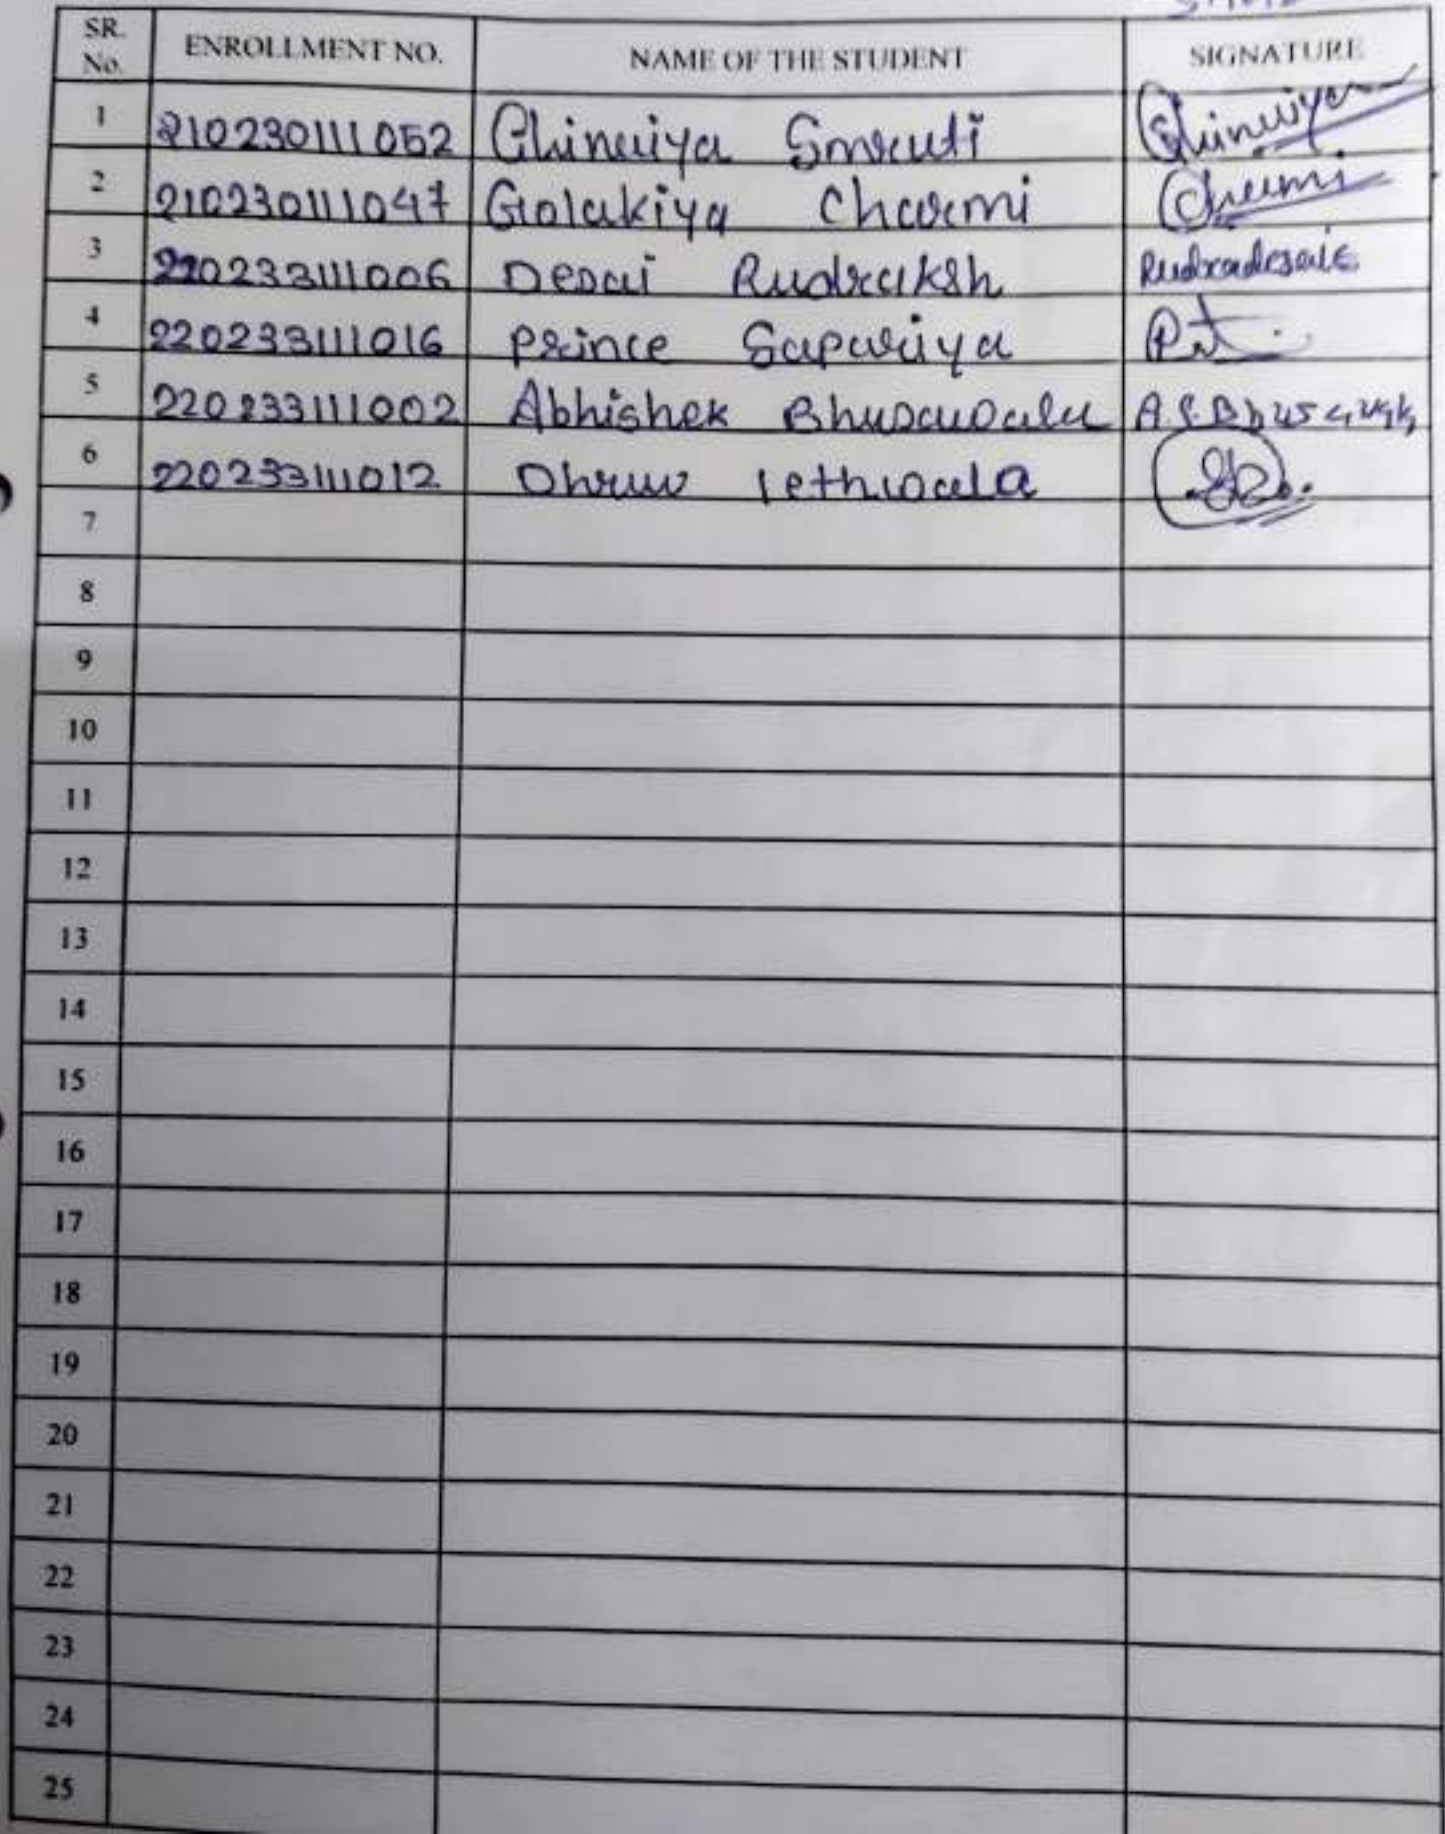 SR. No. ENROLLMENT NO. NAME OF THE STUDENT SIGNATURE
1 210230111052 Chinuiya Smruti Chinuiya
2 210230111047 Golakiya Charmi Charmi
3 220233111006 Desai Rudraksh Rudradesai
4 220233111016 Prince Sapariya
5 220233111002 Abhishek Bhusawala
6 220233111012 Dhruv Jethwala
7
8
9
10
11
12
13
14
15
16
17
18
19
20
21
22
23
24
25